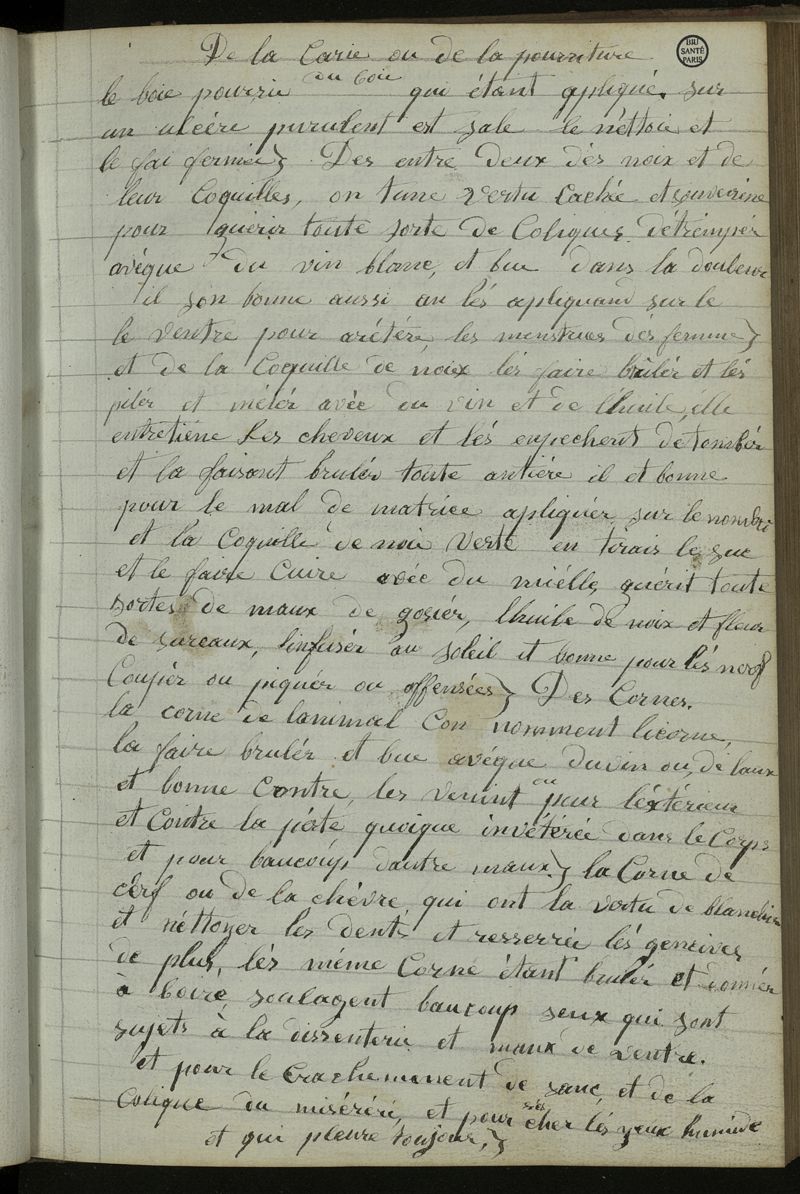 De la Carie ou de la pourriture
BIU
SANTÉ
PARIS
du boie
le boie pourrie qui étant apliqué sur
un ulcére purulent est sale le néttoie et
le fai fermée} Des entre deux dés noix et de
leur Coquilles, on tune vertu Cachée et souverine
pour guérir toute sorte de Coliques détrémpér
avéque du vin blanc, et bue dans la douleur
il son bonne aussi an lés apliquand sur le
le ventre pour arétére les menstrues dés femme}
et de la Coquille de noix lés faire brulér et lés
pilér et mélér avéc du vin et de lhuile, elle
entretiéne les cheveux et lés enpechent détombér
et la faisant brulér toute antiére il et bonne
pour le mal de matrice apliquér sur le nombri
et la Coquille de noix verte en tirais le suc
et le faire Cuire avéc du miélle, guérit toute
sortes de maux de gosiér, lhuile de noix et fleur
de sureaux, linfusér au soleil et bonne pour lés nerf
Coupér ou piquér ou offensées} Des Cornes.
la corne de lanimal Con nomment licorne,
la faire brulér et bue avéque du vin ou, de laux
et bonne Contre, les venint ou pour léxtérieur
et Contre la péste quoique invétérée dans le Corps
et pour baucoup dautre maux} la Corne de
cérf ou de la chévre qui ont la vertu de blanchir
et néttoyer les dents et resserrée lés gencives
de plus, lés méme Corne étant brulér et donnér
à boire, soulagent baucoup seux qui sont
sujets à la dissenterie et maux de ventre.
et pour le Crachemenent de sanc, et de la
Colique du miséréré, et pour sécher lés yeux humide
et qui pleure toujour,}